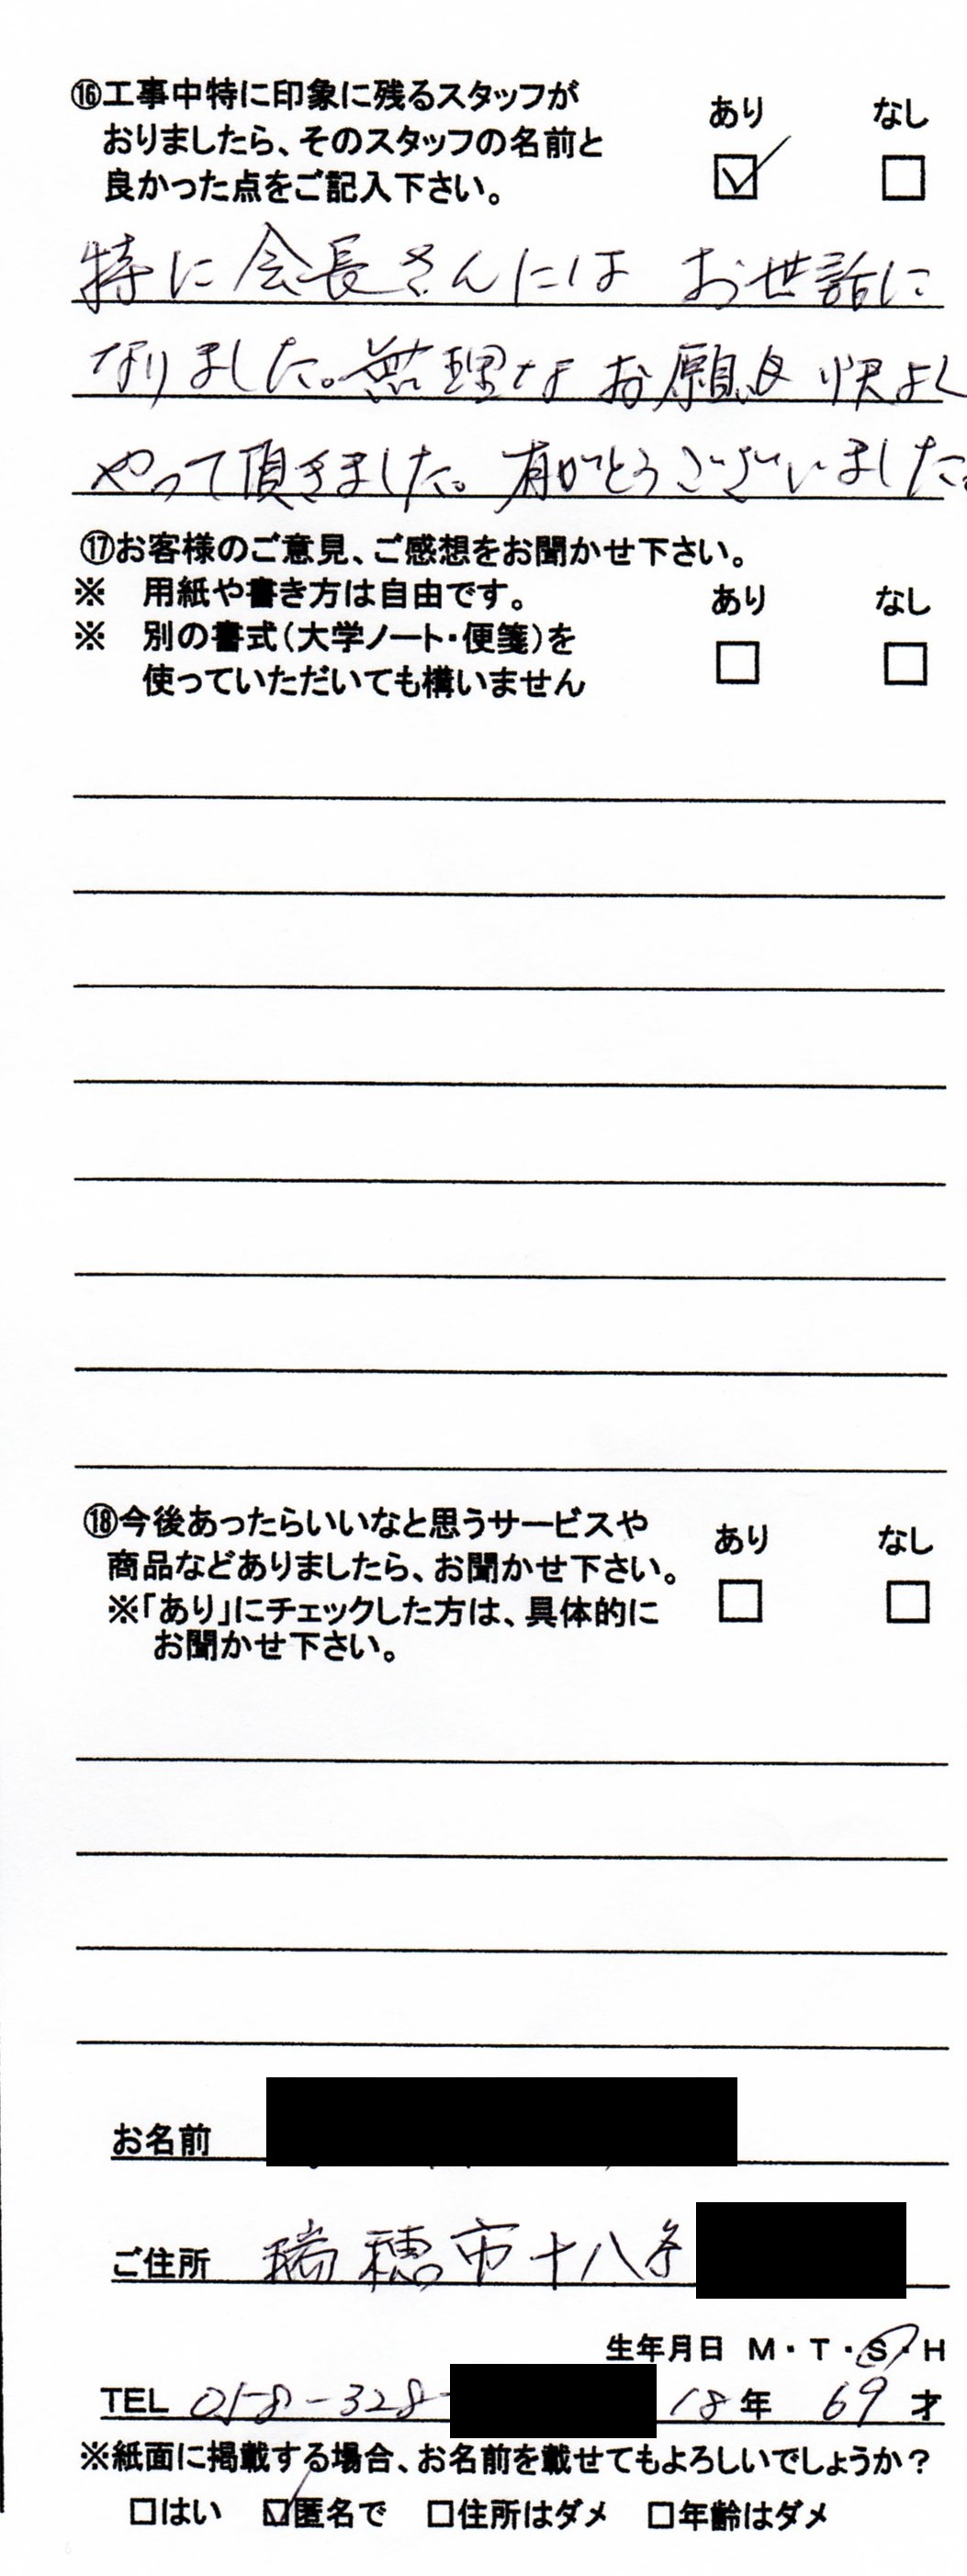 ⑯工事中特に印象に残るスタッフが
おりましたら、そのスタッフの名前と
良かった点をご記入下さい。
あり なし
特に会長さんには お世話に
なりました。無理なお願いも快よく
やって頂きました。有がとうございました。
⑰お客様のご意見、ご感想をお聞かせ下さい。
※ 用紙や書き方は自由です。
※ 別の書式(大学ノート・便箋)を
使っていただいても構いません
あり なし
⑱今後あったらいいなと思うサービスや
商品などありましたら、お聞かせ下さい。
※「あり」にチェックした方は、具体的に
お聞かせ下さい。
あり なし
お名前
ご住所 瑞穂市十八条
生年月日 M・T・S・H
TEL 058-328- 18年 69才
※紙面に掲載する場合、お名前を載せてもよろしいでしょうか?
□はい ☑匿名で □住所はダメ □年齢はダメ